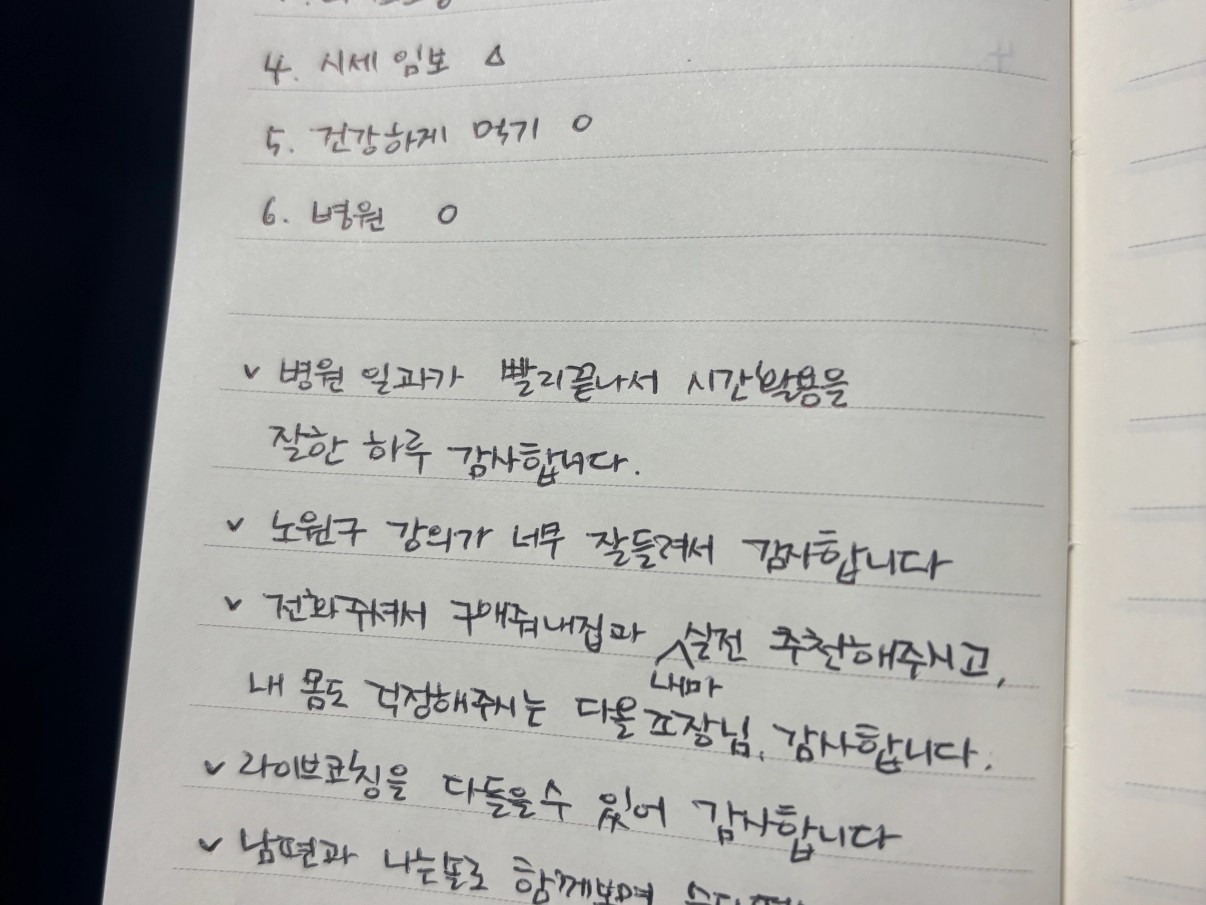 4. 시세 임보 △
5. 건강하게 먹기 O
6. 병원 O
v 병원 일과가 빨리끝나서 시간활용을
잘한 하루 감사합니다.
v 노원구 강의가 너무 잘들려서 감사합니다
v 전화주셔서 구매줘내집과 실전 추천해주시고,
내마
내 몸도 걱정해주시는 다올조장님, 감사합니다.
v 라이브코칭을 다들을수 있어 감사합니다
v 남편과 나는솔로 함께보며